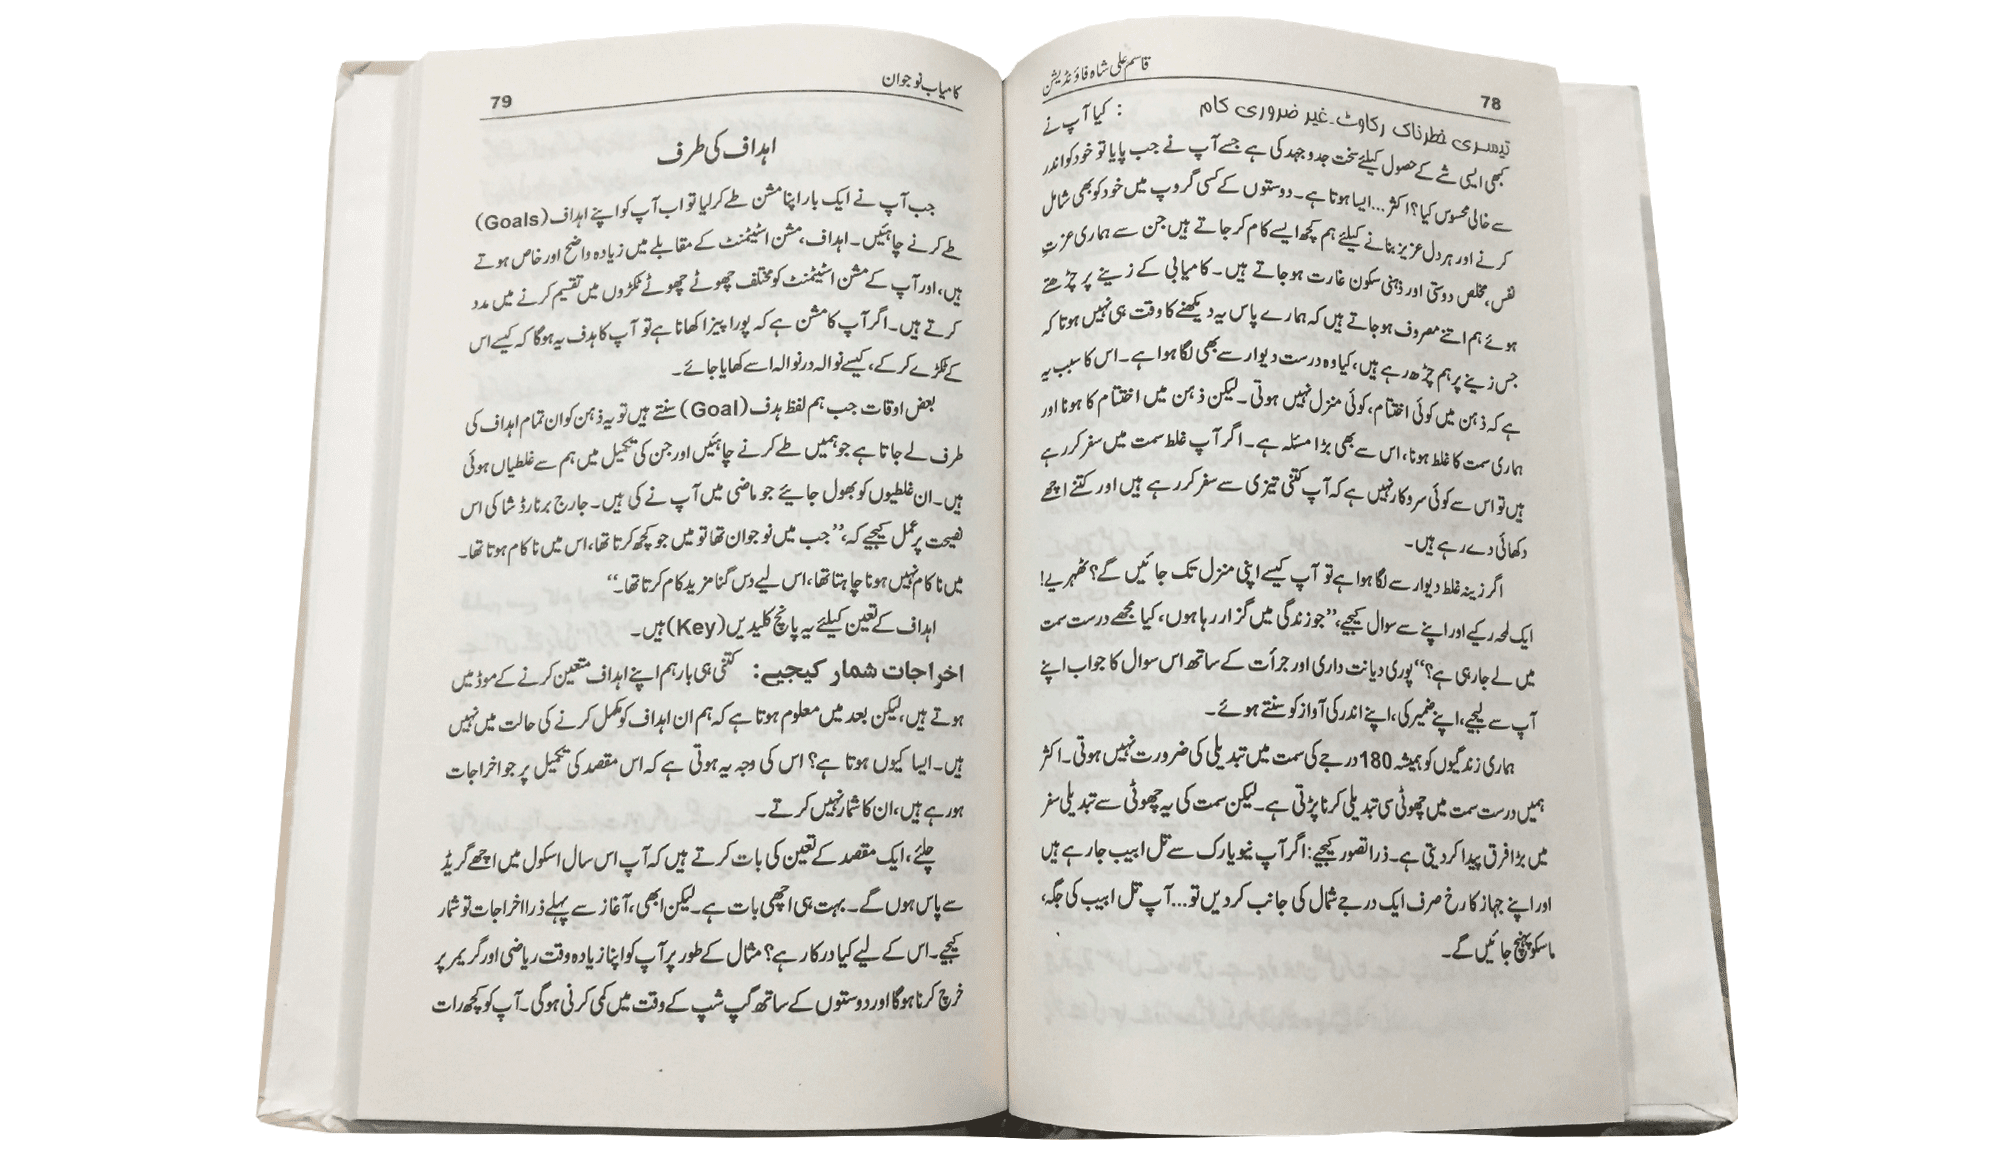 78
قاسم علی شاہ فاؤنڈیشن
تیسری خطرناک رکاوٹ۔غیر ضروری کام : کیا آپ نے
کبھی ایسی شے کے حصول کیلئے سخت جدوجہد کی ہے جسے آپ نے جب پایا تو خود کو اندر
سے خالی محسوس کیا؟ اکثر...ایسا ہوتا ہے۔ دوستوں کے کسی گروپ میں خود کو بھی شامل
کرنے اور ہر دل عزیز بنانے کیلئے ہم کچھ ایسے کام کر جاتے ہیں جن سے ہماری عزتِ
نفس، مخلص دوستی اور ذہنی سکون غارت ہوجاتے ہیں۔ کامیابی کے زینے پر چڑھتے
ہوئے ہم اتنے مصروف ہوجاتے ہیں کہ ہمارے پاس یہ دیکھنے کا وقت ہی نہیں ہوتا کہ
جس زینے پر ہم چڑھ رہے ہیں، کیا وہ درست دیوار سے بھی لگا ہوا ہے۔ اس کا سبب یہ
ہے کہ ذہن میں کوئی اختتام، کوئی منزل نہیں ہوتی۔ لیکن ذہن میں اختتام کا ہونا اور
ہماری سمت کا غلط ہونا، اس سے بھی بڑا مسئلہ ہے۔ اگر آپ غلط سمت میں سفر کر رہے
ہیں تو اس سے کوئی سروکار نہیں ہے کہ آپ کتنی تیزی سے سفر کر رہے ہیں اور کتنے اچھے
دکھائی دے رہے ہیں۔
اگر زینہ غلط دیوار سے لگا ہوا ہے تو آپ کیسے اپنی منزل تک جائیں گے؟ ٹھہریے!
ایک لمحہ رکیے اور اپنے سے سوال کیجیے، ”جو زندگی میں گزار رہا ہوں، کیا مجھے درست سمت
میں لے جارہی ہے؟“ پوری دیانت داری اور جرأت کے ساتھ اس سوال کا جواب اپنے
آپ سے لیجیے، اپنے ضمیر کی، اپنے اندر کی آواز کو سنتے ہوئے۔
ہماری زندگیوں کو ہمیشہ 180 درجے کی سمت میں تبدیلی کی ضرورت نہیں ہوتی۔ اکثر
ہمیں درست سمت میں چھوٹی سی تبدیلی کرنا پڑتی ہے۔ لیکن سمت کی یہ چھوٹی سے تبدیلی سفر
میں بڑا فرق پیدا کردیتی ہے۔ ذرا تصور کیجیے: اگر آپ نیویارک سے تل ابیب جارہے ہیں
اور اپنے جہاز کا رخ صرف ایک درجے شمال کی جانب کردیں تو... آپ تل ابیب کی جگہ،
ماسکو پہنچ جائیں گے۔
کامیاب نوجوان
79
اہداف کی طرف
جب آپ نے ایک بار اپنا مشن طے کرلیا تو اب آپ کو اپنے اہداف (Goals)
طے کرنے چاہئیں۔ اہداف، مشن اسٹیٹمنٹ کے مقابلے میں زیادہ واضح اور خاص ہوتے
ہیں، اور آپ کے مشن اسٹیٹمنٹ کو مختلف چھوٹے چھوٹے ٹکڑوں میں تقسیم کرنے میں مدد
کرتے ہیں۔ اگر آپ کا مشن ہے کہ پورا پیزا کھانا ہے تو آپ کا ہدف یہ ہوگا کہ کیسے اس
کے ٹکڑے کر کے، کیسے نوالہ در نوالہ اسے کھایا جائے۔
بعض اوقات جب ہم لفظ ہدف (Goal) سنتے ہیں تو یہ ذہن کو ان تمام اہداف کی
طرف لے جاتا ہے جو ہمیں طے کرنے چاہئیں اور جن کی تکمیل میں ہم سے غلطیاں ہوئی
ہیں۔ ان غلطیوں کو بھول جایئے جو ماضی میں آپ نے کی ہیں۔ جارج برنارڈ شا کی اس
نصیحت پر عمل کیجیے کہ، ”جب میں نوجوان تھا تو میں جو کچھ کرتا تھا، اس میں ناکام ہوتا تھا۔
میں ناکام نہیں ہونا چاہتا تھا، اس لیے دس گنا مزید کام کرتا تھا۔“
اہداف کے تعین کیلئے یہ پانچ کلیدیں (Key) ہیں۔
اخراجات شمار کیجیے: کتنی ہی بار ہم اپنے اہداف متعین کرنے کے موڈ میں
ہوتے ہیں، لیکن بعد میں معلوم ہوتا ہے کہ ہم ان اہداف کو مکمل کرنے کی حالت میں نہیں
ہیں۔ ایسا کیوں ہوتا ہے؟ اس کی وجہ یہ ہوتی ہے کہ اس مقصد کی تکمیل پر جو اخراجات
ہورہے ہیں، ان کا شمار نہیں کرتے۔
چلئے، ایک مقصد کے تعین کی بات کرتے ہیں کہ آپ اس سال اسکول میں اچھے گریڈ
سے پاس ہوں گے۔ بہت ہی اچھی بات ہے۔ لیکن ابھی، آغاز سے پہلے ذرا اخراجات تو شمار
کیجیے۔ اس کے لیے کیا درکار ہے؟ مثال کے طور پر آپ کو اپنا زیادہ وقت ریاضی اور گریمر پر
خرچ کرنا ہوگا اور دوستوں کے ساتھ گپ شپ کے وقت میں کمی کرنی ہوگی۔ آپ کو کچھ رات